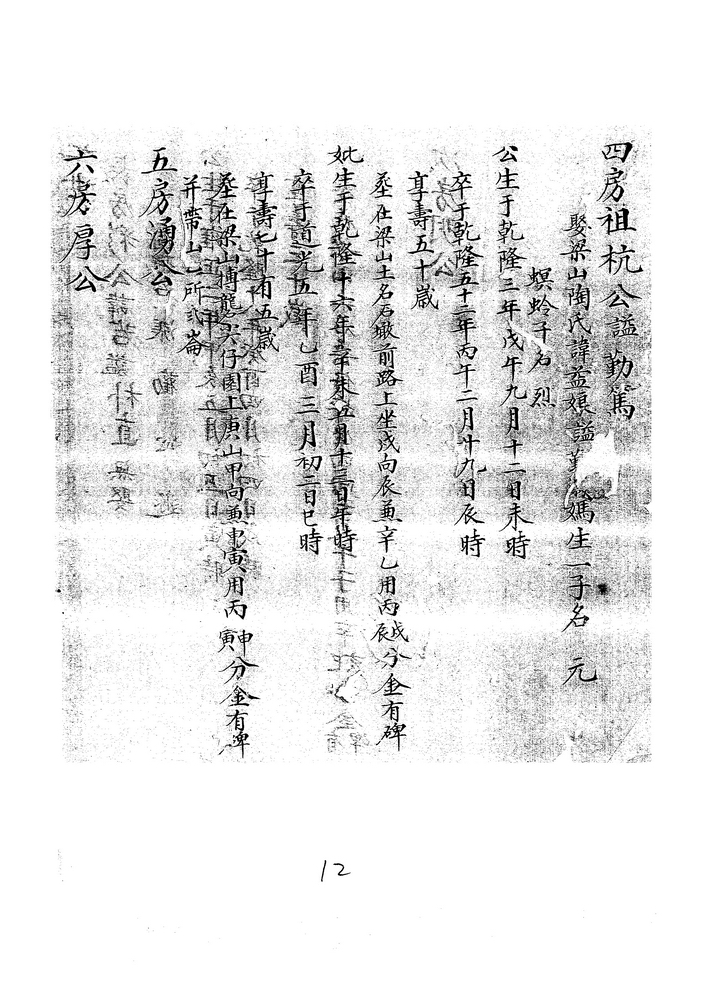 四房祖杭公謚勤篤
娶梁山陶氏諱益娘謚勤媽生一子名 元
螟蛉子名烈
公生于乾隆三年戊午九月十二日未時
卒于乾隆五十一年丙午二月廿九日辰時
享壽五十歲
葬在梁山土名前路上坐戌向辰兼辛乙用丙戌丙辰分金有碑
妣生于乾隆十六年辛未五月十三日午時
卒于道光五年乙酉三月初二日巳時
享壽七十有五歲
葬在梁山搏尖仔園上庚山甲向兼申寅用丙申丙寅分金有碑
并帶山乙所貳崙
五房湧公
六房厚公
12